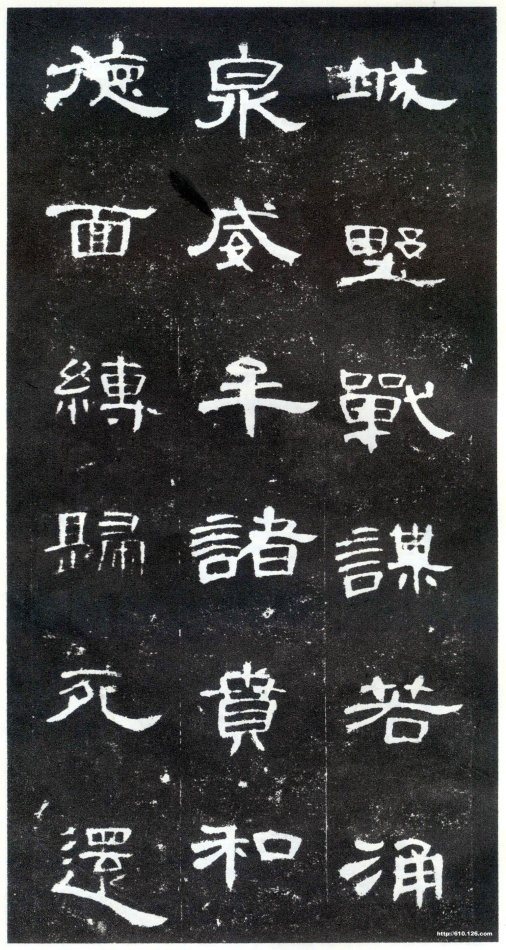 城野戰謀若涌
泉威牟諸賁和
德面縛歸死還
http://610.126.com